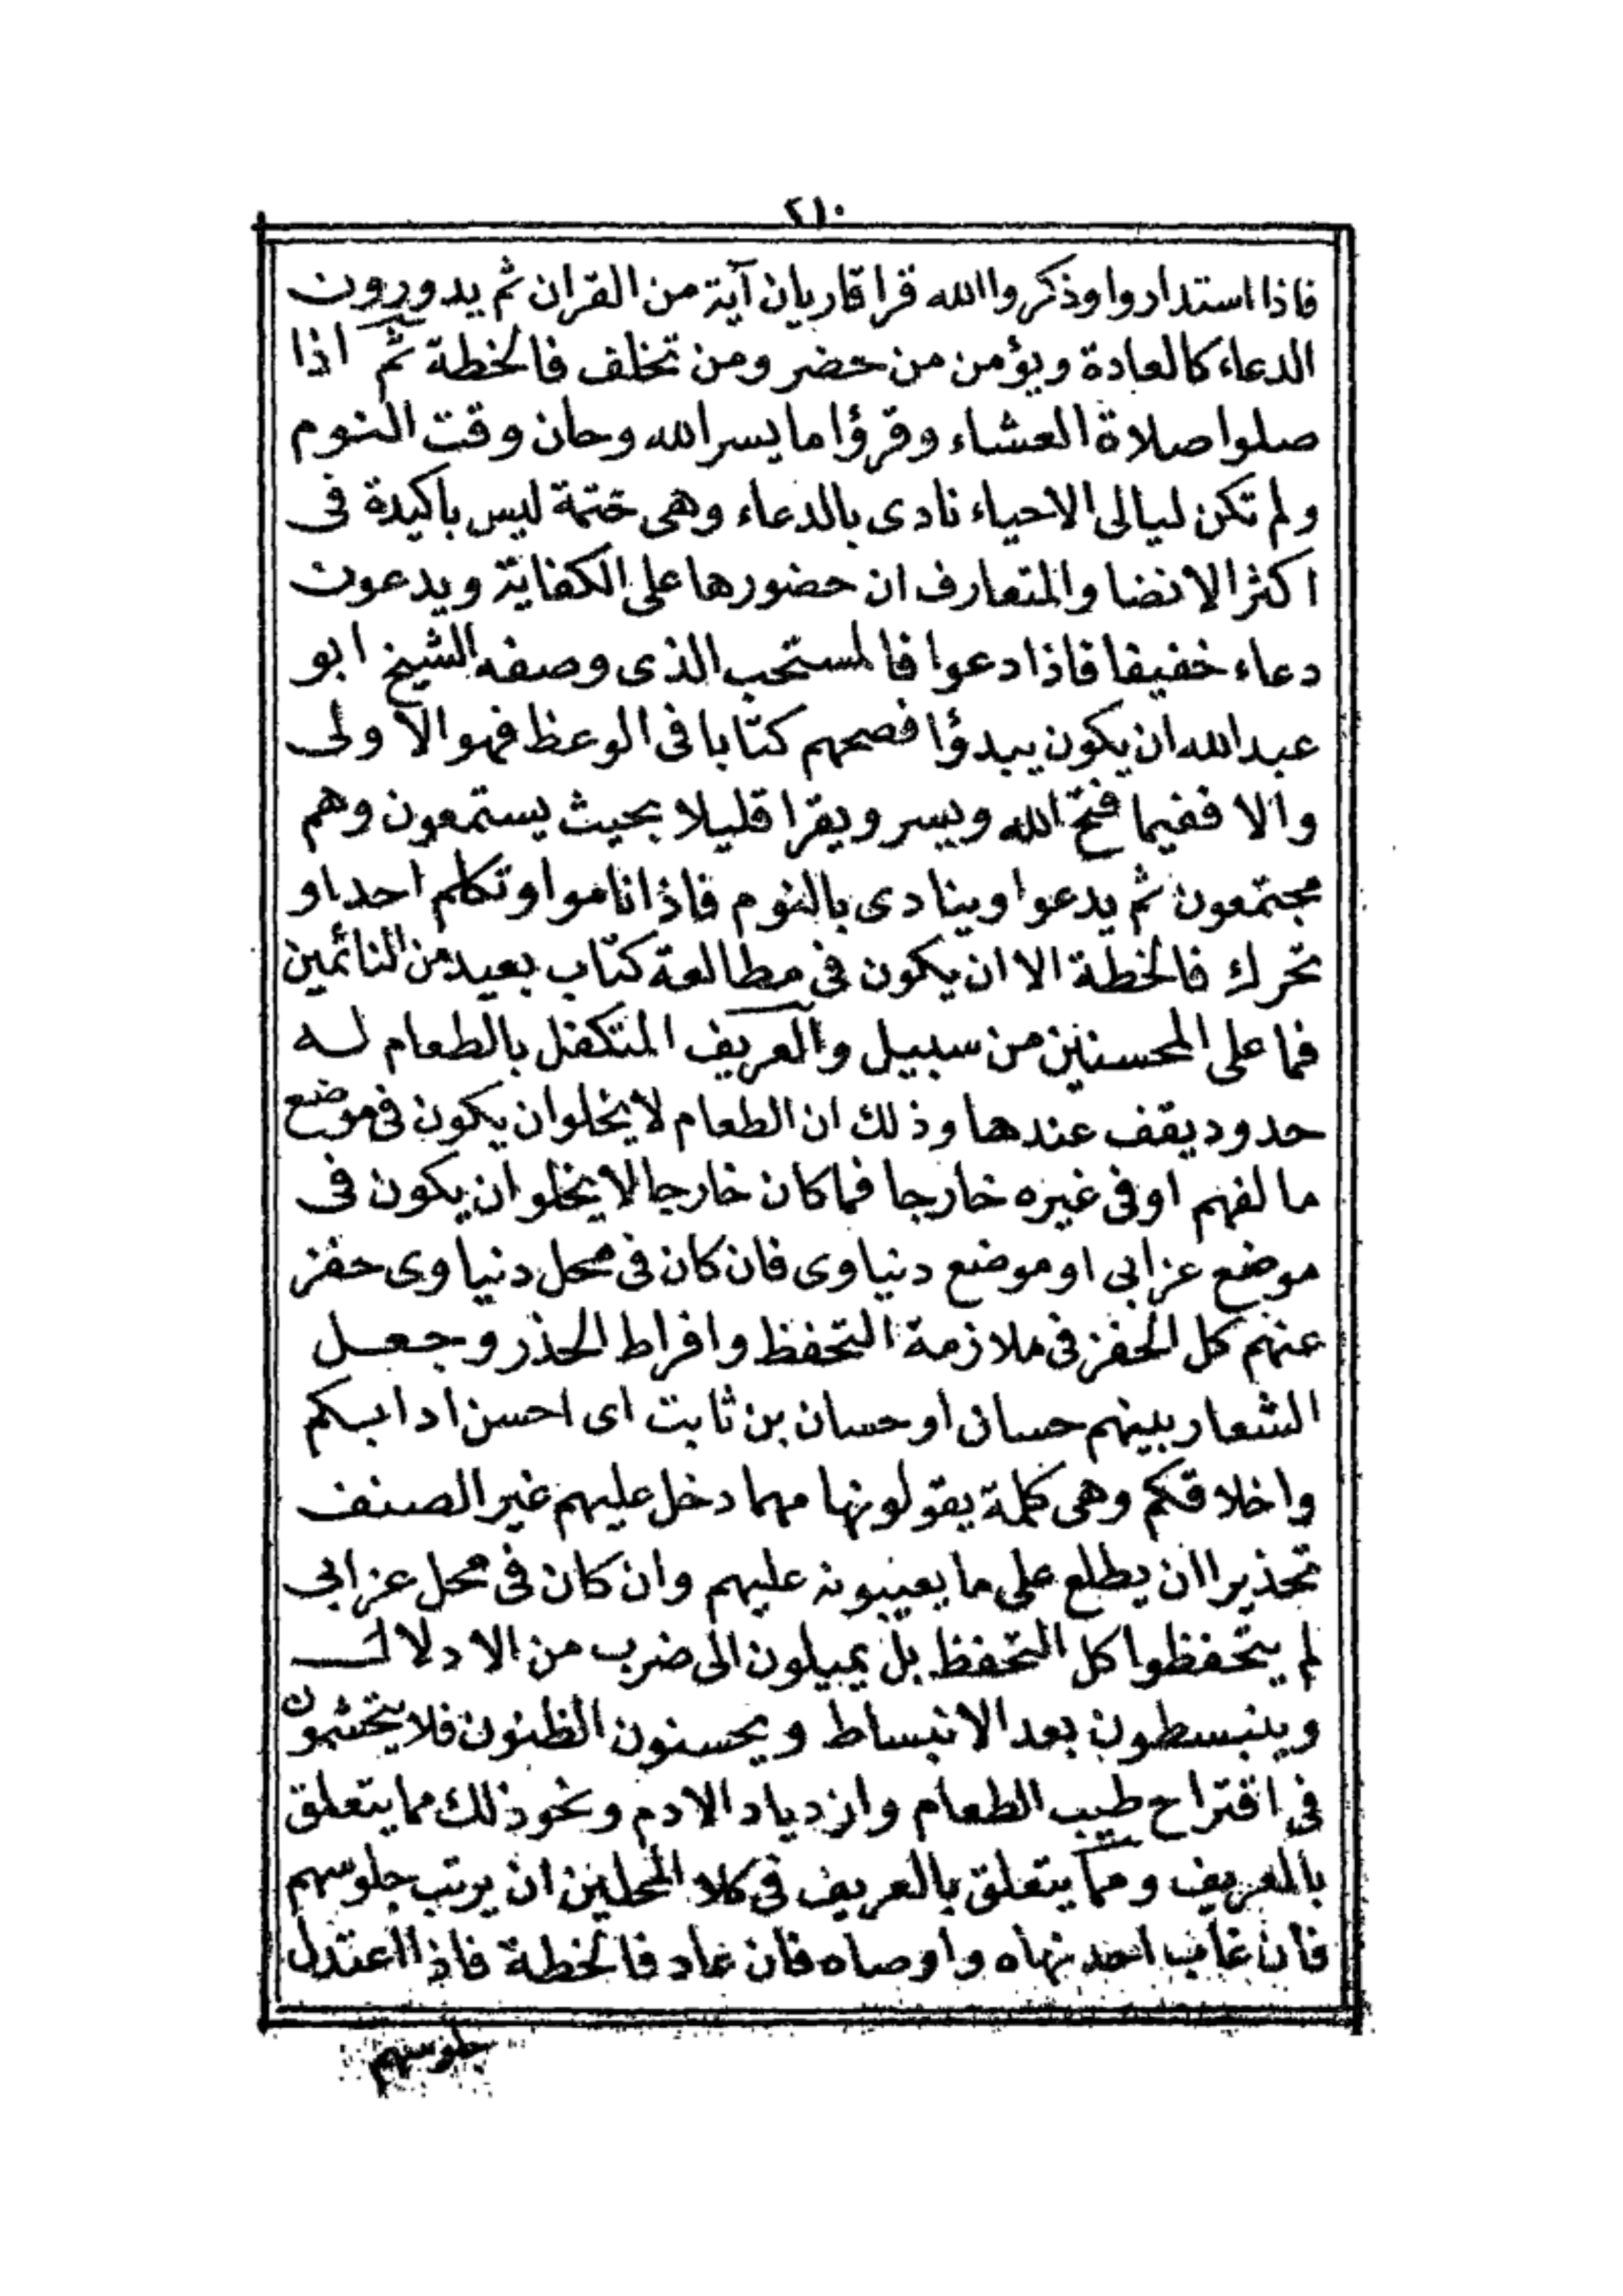 ٢١٠
فاذا استداروا وذكروا الله قرا قاريان آية من القران ثم يدورون
الدعاء كالعادة ويؤمن من حضر ومن تخلف فالخطة ثم اذا
صلوا صلاة العشاء وقرؤا ما يسر الله وحان وقت النوم
ولم تكن ليالى الاحياء نادى بالدعاء وهى ختمة ليس باكيدة فى
اكثر الانضا والمتعارف ان حضورها على الكفاية ويدعون
دعاء خفيفا فاذا دعوا فالمستحب الذى وصفه الشيخ ابو
عبد الله ان يكون يبدؤا فصحهم كتابا فى الوعظ فهو الاولى
والا ففيما فتح الله ويسر ويقرا قليلا بحيث يستمعون وهم
مجتمعون ثم يدعوا وينادى بالنوم فاذا ناموا وتكلم احد او
تحرك فالخطة الا ان يكون فى مطالعة كتاب بعيد من النائمين
فما على المحسنين من سبيل والعريف المتكفل بالطعام له
حدود يقف عندها وذلك ان الطعام لا يخلوا ن يكون فى موضع
مالفهم او فى غيره خارجا فما كان خارجا لا يخلو ان يكون فى
موضع عزابى او موضع دنياوى فان كان فى محل دنياوى حفز
عنهم كل الحفز فى ملازمة التحفظ وافراط الحذر وجعل
الشعار بينهم حسانى او حسان بن ثابت اى احسن ادابكم
واخلاقكم وهى كلمة يقولونها مهما دخل عليهم غير الصنف
تحذيرا ان يطلع على ما يعيبونه عليهم وان كان فى محل عزابى
لم يتحفظوا كل التحفظ بل يميلون الى ضرب من الادلال
وينبسطون بعد الانبساط ويحسنون الظنون فلا يحتشمون
فى اقتراح طيب الطعام وازدياد الادم ونحو ذلك مما يتعلق
بالعريف ومما يتعلق بالعريف فى كلا المحلين ان يرتب جلوسهم
فان غاب احد نهاه واوصاه فان عاد فالخطة فاذا اعتدل
جلوسهم